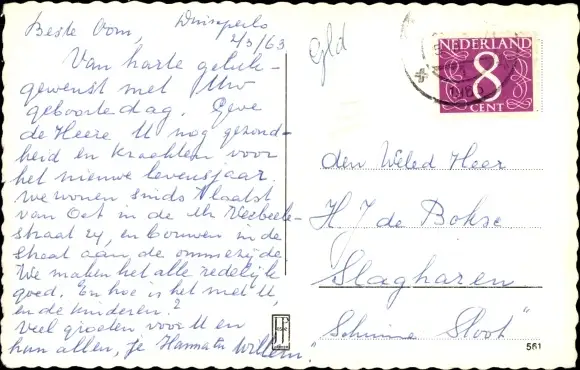 Beste Oom,
2/3/63
Van harte geluk-
gewenst met Uw
geboortedag. Geve
de Heere U nog gezond-
heid en krachten voor
het nieuwe levensjaar.
We wonen sinds
van Oct in de
straat 24, en bouwen in de
straat aan de ommezijde.
We maken het alle redelijk
goed. En hoe is het met U,
en de kinderen?
Veel groeten voor U en
hun allen, je Hanna en Willem.
Gld
NEDERLAND
8
CENT
den Weled Heer
H J de Bokse
Slagharen
"Schuine Sloot"
561